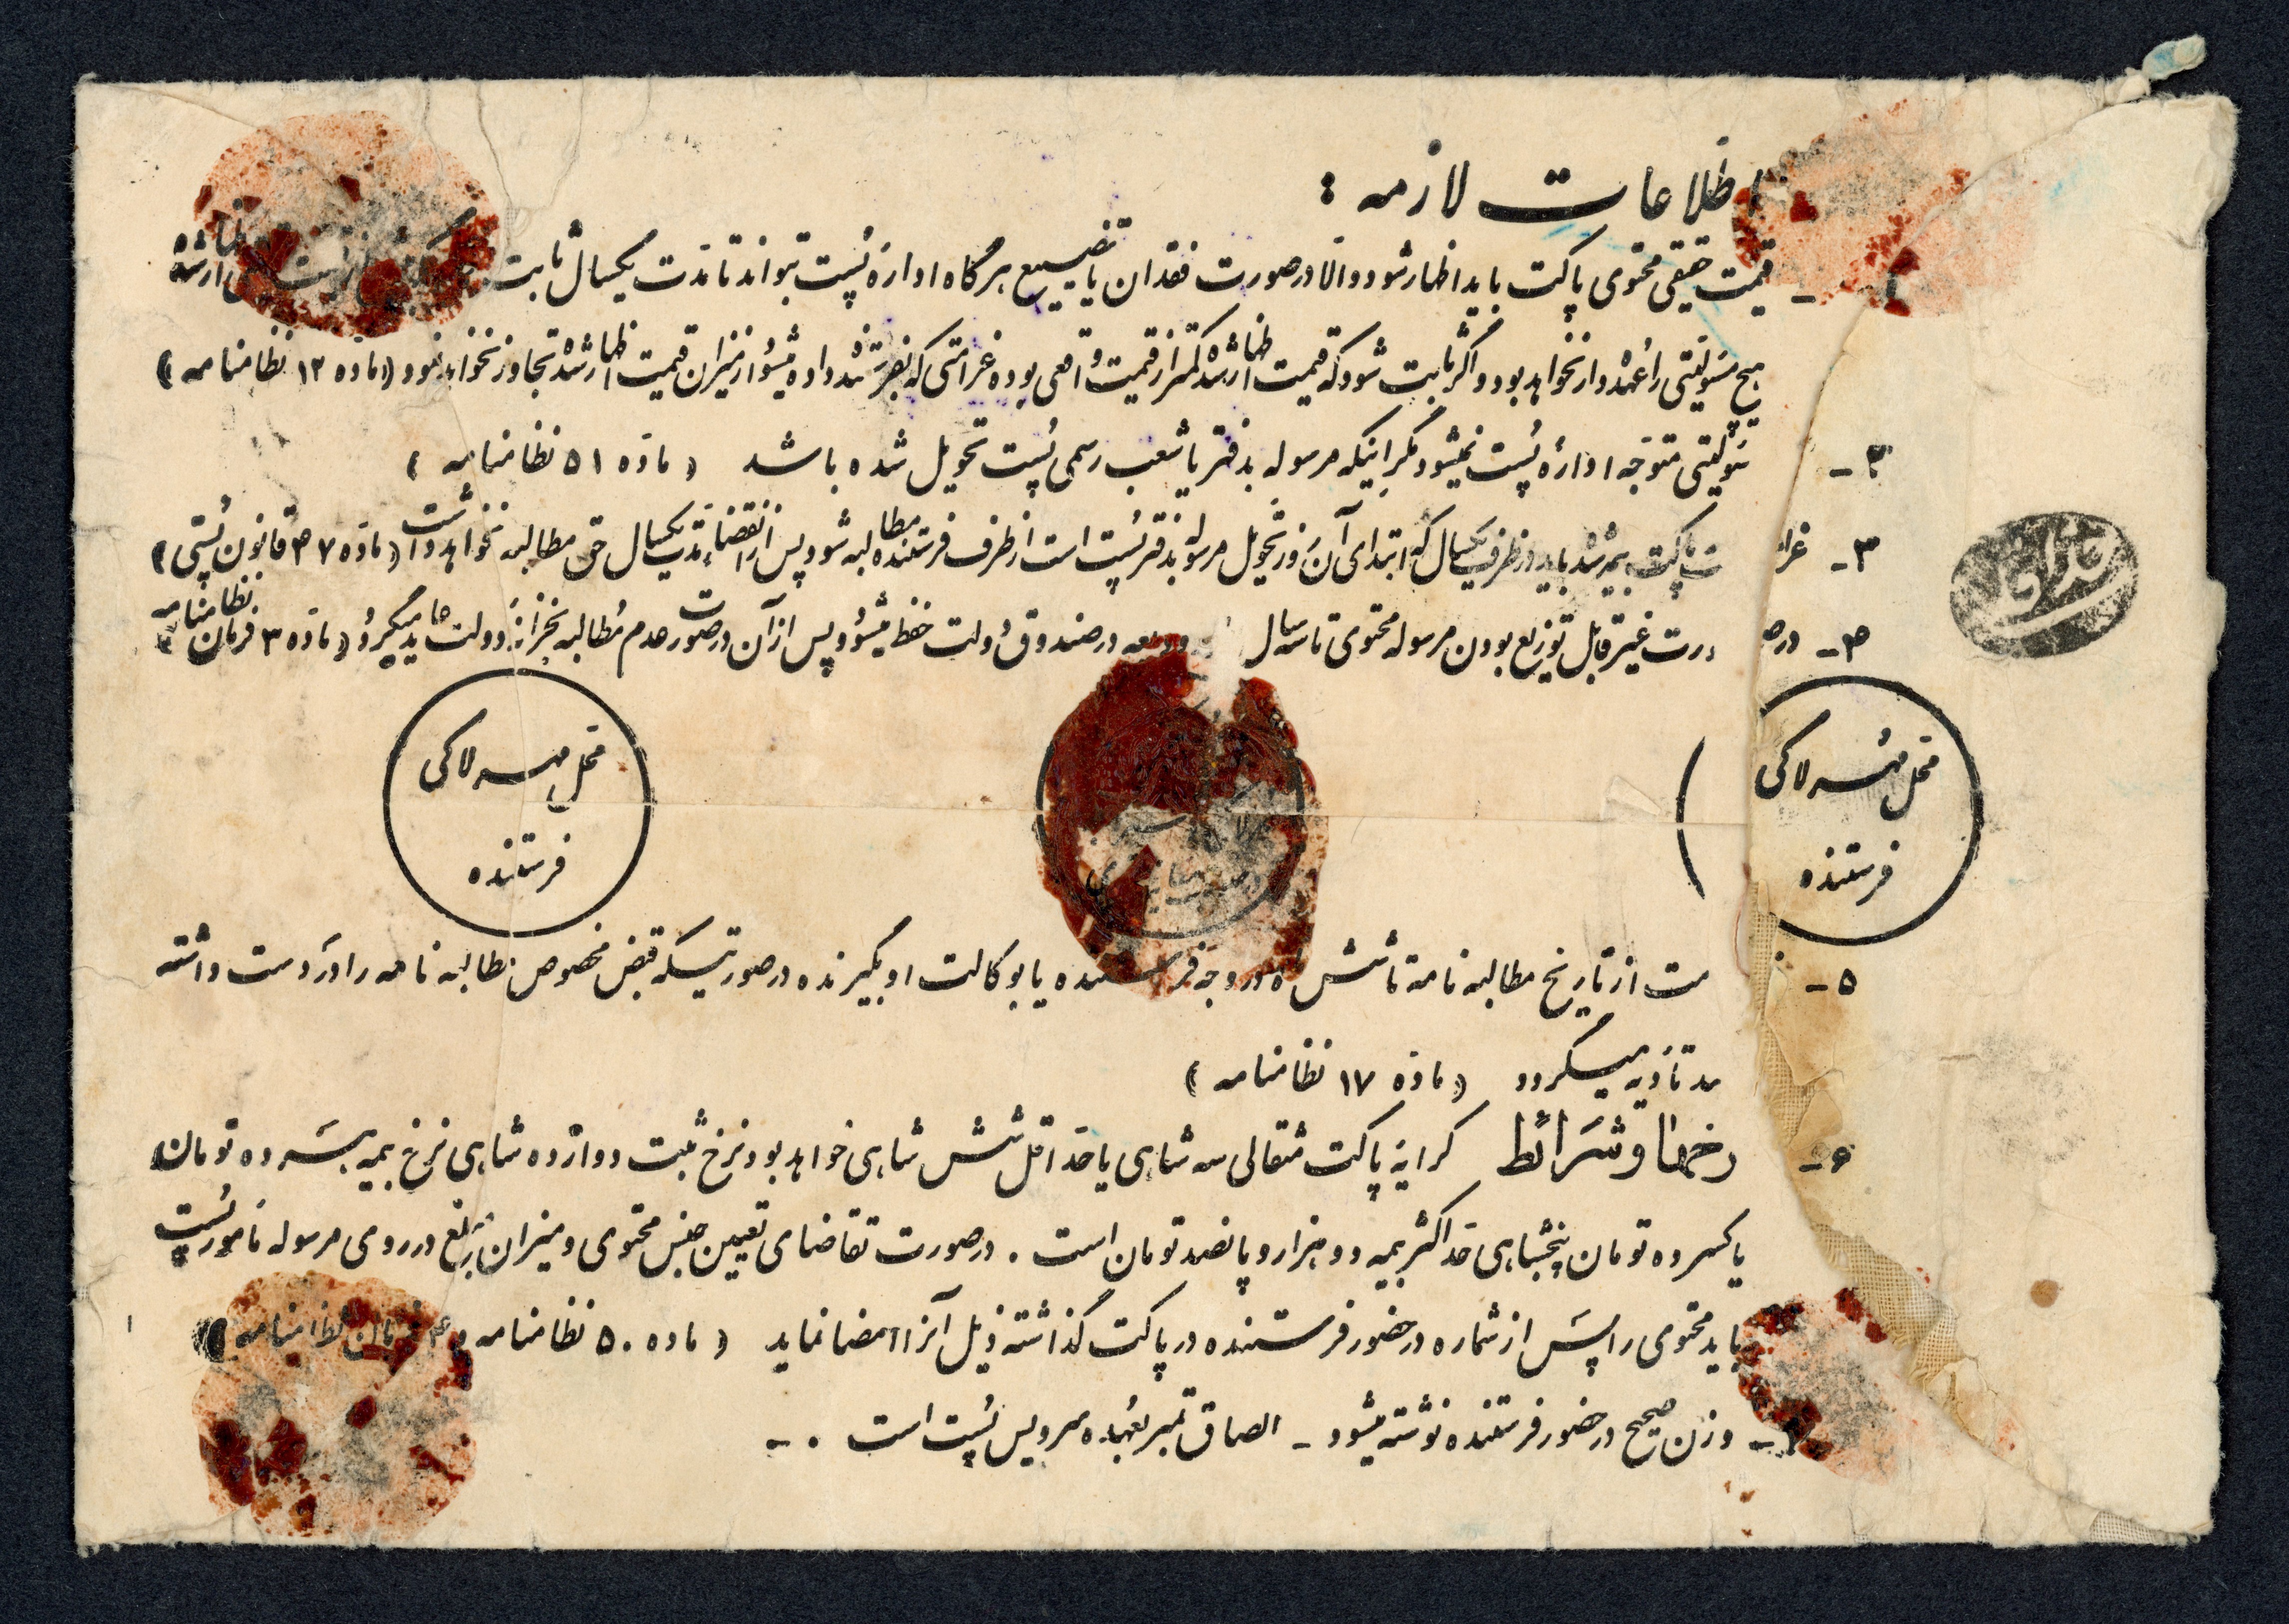 اطلاعات لازمه :
۱ - قیمت حقیقی محتوی پاکت باید اظهار شود و الا در صورت فقدان یا تضییع هرگاه اداره پست بتواند تا مدت یکسال ثابت اظهار شده
هیچ مسئولیتی را عهده‌دار نخواهد بود و اگر ثابت شود که قیمت اظهار شده کمتر از قیمت واقعی بوده غرامتی که بفرستنده داده میشود از میزان قیمت اظهار شده تجاوز نخواهد نمود (ماده ۱۲ نظامنامه)
۲ - مسئولیتی متوجه اداره پست نمیشود مگر اینکه مرسوله بدفتر یا شعب رسمی پست تحویل شده باشد (ماده ۵۱ نظامنامه)
۳ - غرامت پاکت بیمه شده باید در ظرف یکسال که ابتدای آن روز تحویل مرسوله بدفتر پست است از طرف فرستنده مطالبه شود پس از انقضاء مدت یکسال حق مطالبه نخواهد داشت (ماده ۳۷ قانون پستی)
۴ - در صورت غیر قابل توزیع بودن مرسوله محتوی تا سه سال ودیعه در صندوق دولت حفظ میشود پس از آن در صورت عدم مطالبه بخزانه دولت عاید میگردد (ماده ۳ فرمان نظامنامه)
محل مهر لاکی
فرستنده
محل مهر لاکی
فرستنده
۵ - از تاریخ مطالبه نامه تا شش ماه در وجه فرستنده یا بوکالت او بگیرنده در صورتیکه قبض مخصوص مطالبه نامه را در دست داشته
تأدیه میگردد (ماده ۱۷ نظامنامه)
۶ - و شرائط کرایه پاکت مثقالی سه شاهی یا حداقل شش شاهی خواهد بود نرخ ثبت دوازده شاهی نرخ بیمه هر ده تومان
یا کسر ده تومان پنجشاهی حداکثر بیمه دو هزار و پانصد تومان است . در صورت تقاضای تعیین جنس محتوی و میزان مبلغ در روی مرسوله مامور پست
باید محتوی را پس از شماره در حضور فرستنده در پاکت گذاشته ذیل آنرا امضا نماید (ماده ۵۰ نظامنامه و ۴ فرمان نظامنامه)
- وزن صحیح در حضور فرستنده نوشته میشود - الصاق تمبر بعهده سرویس پست است . -